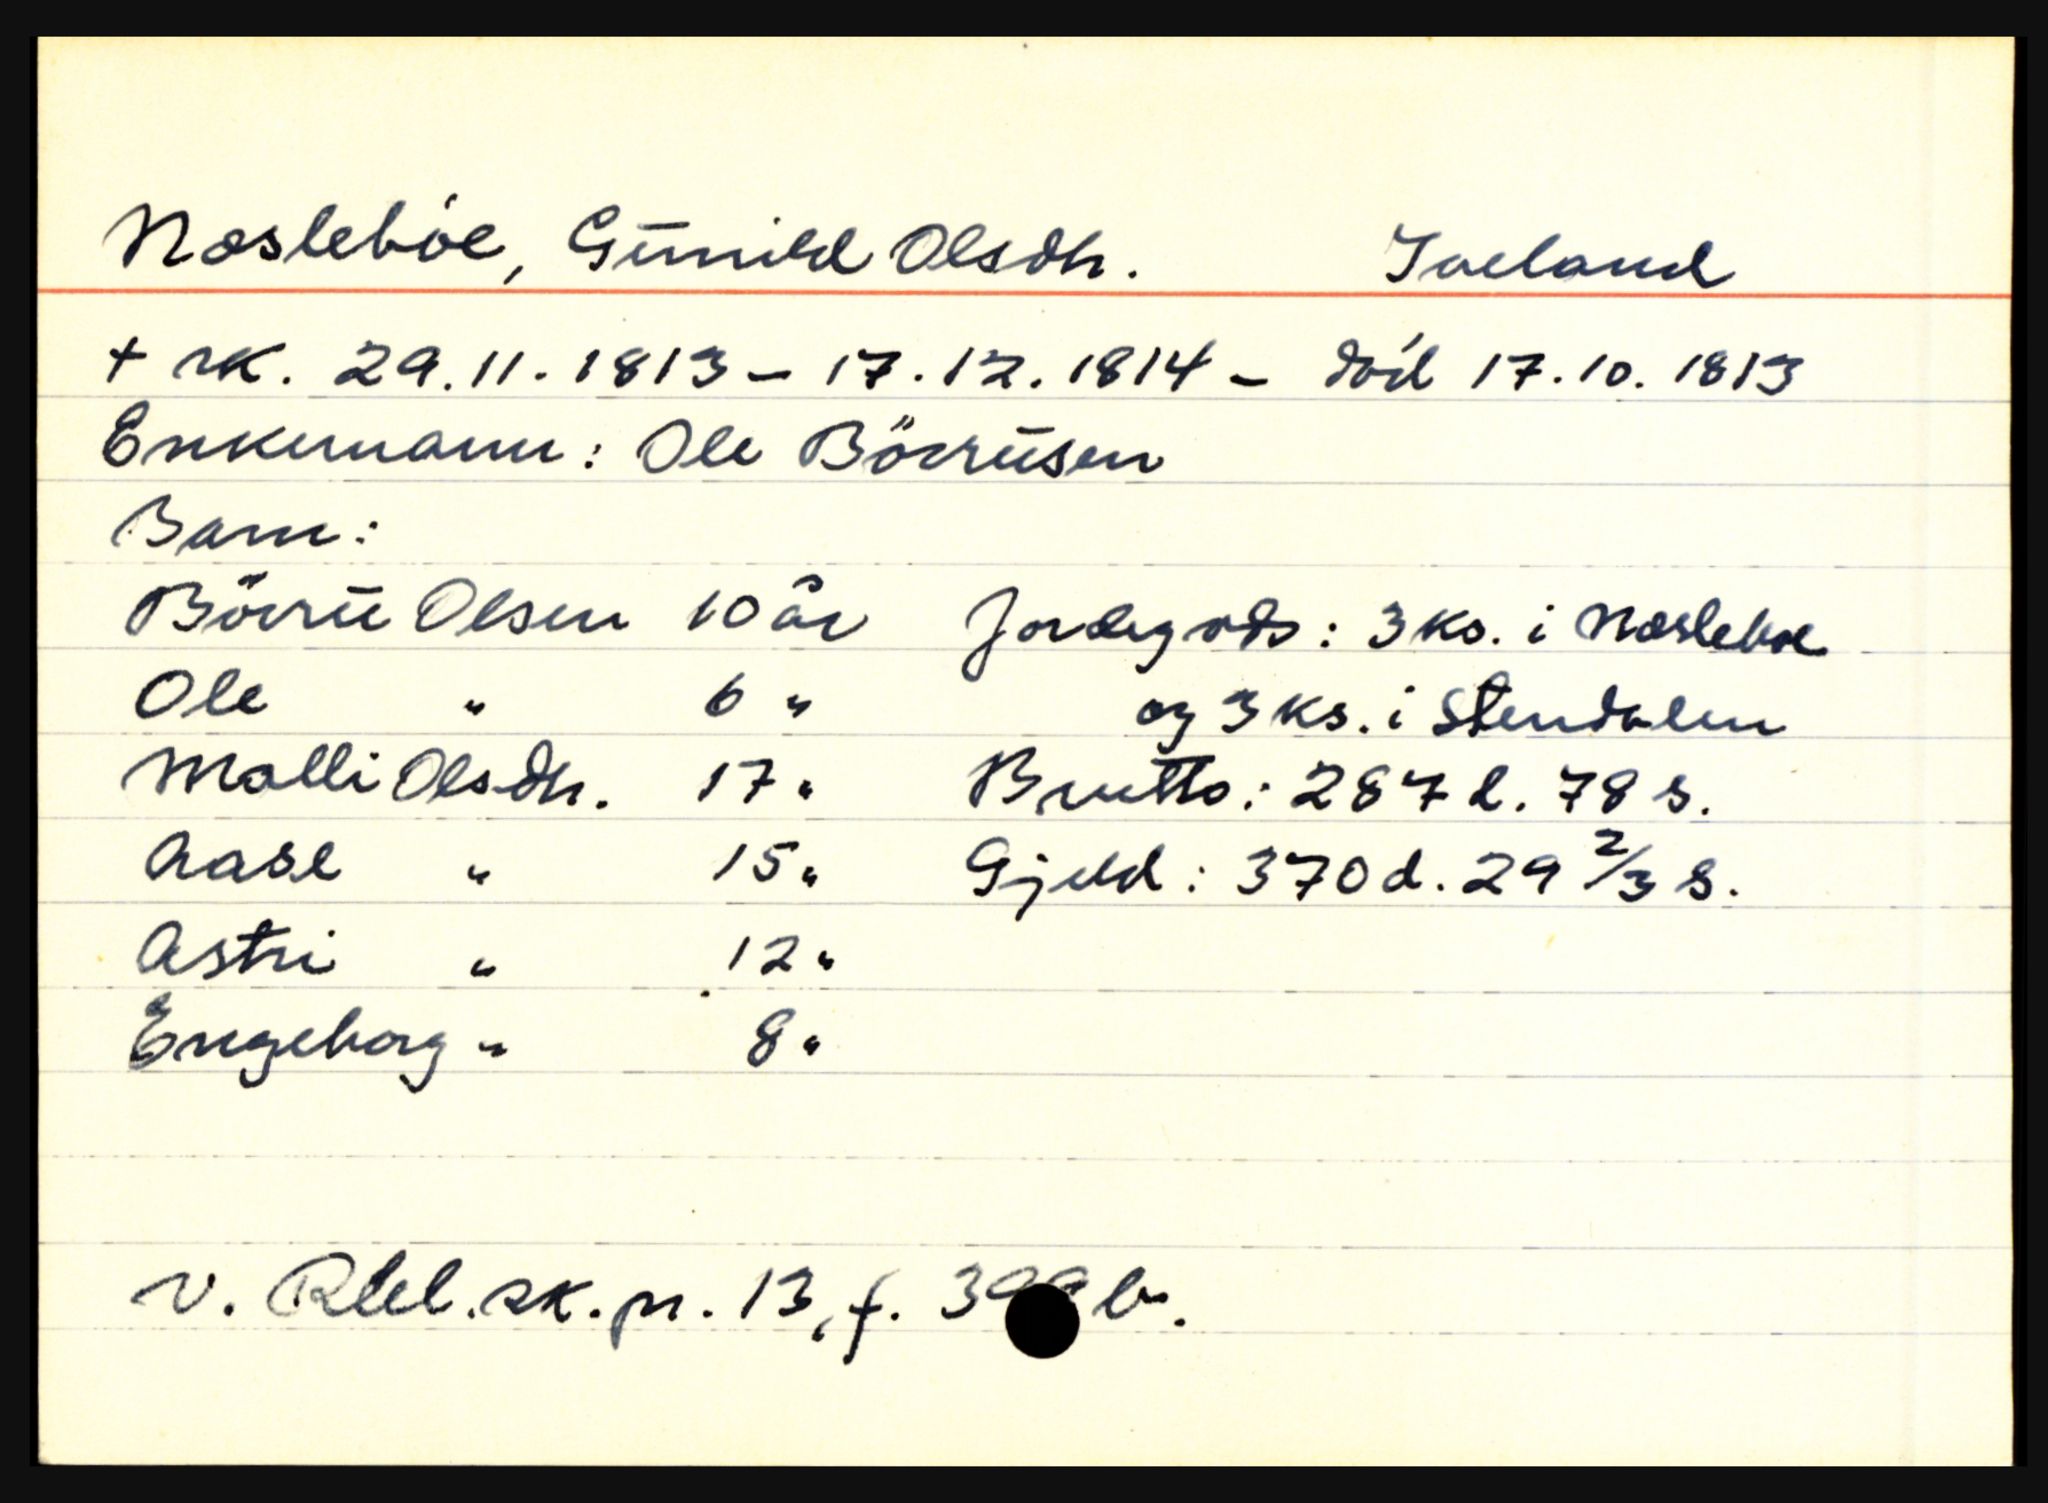 Næsleböe, Gūnild Olsdtr. Iveland
+ sk. 29.11.1813 – 17.12.1814 – död 17.10.1813
Enkemann: Ole Börrūsen
Barn:
Börrū Olsen 10 år Jordegods: 3 ks. i Næsleboe
Ole " 6 " og 3 ks. i Stendalen
Malli Olsdtr. 17 " Brutto: 287 d. 78 s.
Aase " 15 " Gjeld: 370 d. 29 2/3 s.
Astri " 12 "
Engeborg " 8 "
v. Rbl. sk. pr. 13, f. b.